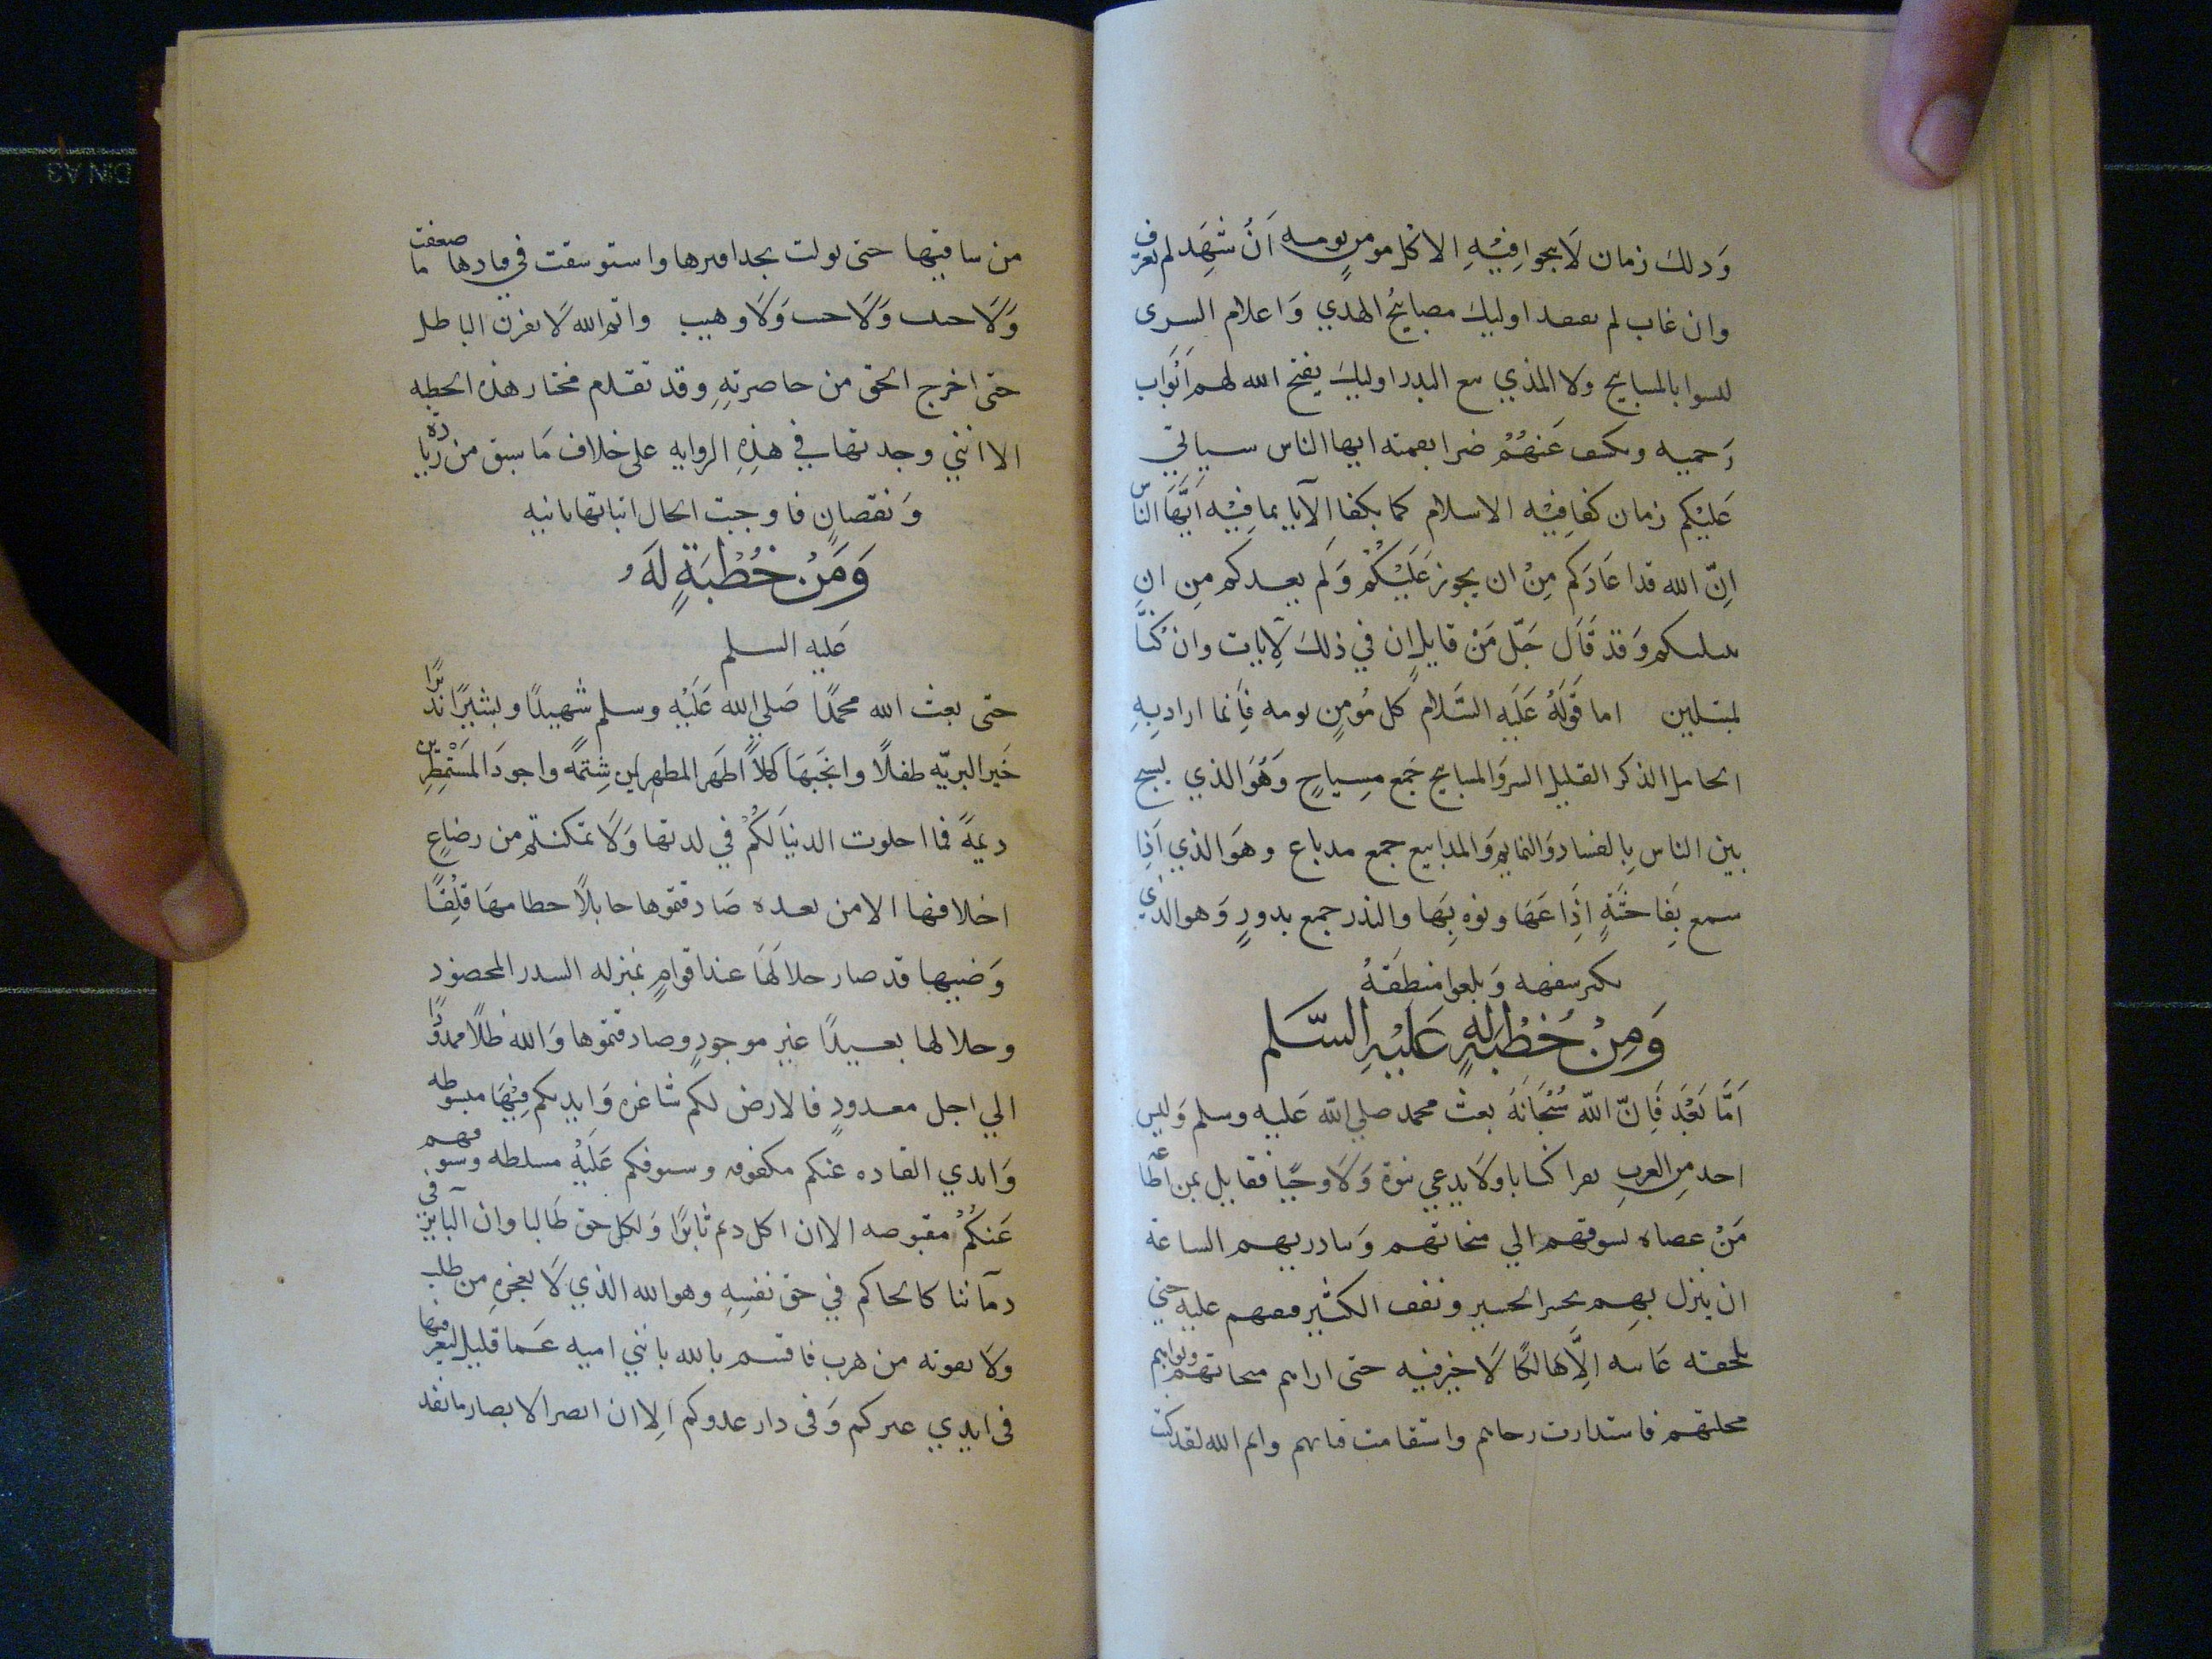 وَدلكَ زمان لَا ينجوا فِيْهِ الا كل مومنٍ نومه اَنْ شَهِد لم يعرف
وان غاب لم يفتقد اوليكَ مصابيحُ الهدي وَاعلام السرى
ليسوا بالمسابيح ولا المذابيع البدر اوليكَ يفتح الله لهم اَبْوَاب
رَحميه ويكشف عَنهُمْ ضرا بعمته ايها الناس سياتي
عَليْكم زمان كفا فِيْه الاسلام كما يكفا الآنا بما فِيْه اَيَّهَا النَّاس
اِنّ الله قد اعَادَكم مِنْ ان يجوز عَلَيْكُمْ وَلم يعدكم مِن ان
يبتليكم وَقد قَال جَلّ مَنْ قايلٍ ان في ذلكَ لَآيات وان كنَّا
لمبتلين اما قَولَهُ عَلَيهِ السَّلام كل مُومنٍ نومه فَإنما اراد بِهِ
الحامل الذكر القليل السر وَالمسابيح جَمع مِسياحٍ وَهُوَ الذي يسيح
بين الناس بِالفساد وَالنمايم وَالمدابيع جمع مدياع وهوَ الذي اَذِا
سمع بِفَاحشَةٍ اذِاعَهَا ونوه بِهَا والبذر جمع بدورٍ وَهو الذي
يكثر سفهه وَيلغوا منطِقَهُ
وَمِنْ خُطْبَةٍ لهِ عَلَيْهِ السَّلم
اَمَّا بَعْدَ فَاِنّ اللّه سُبْحَانَهُ بعثَ محمد صلي اللّه عَليه وسلم وَليس
احد مِن العربِ يقرا كتابا ولَا يدعي نبوة وَلَا وحيًا فقاتل بمن اطاعه
مَنْ عصاه يسوقهم الي منجاتهم وَيبادر بهم الساعة
ان ينزل بهِم يحسر الحسير ونقف الكثير عليه حتي
يلحقه غايته اِلَّا هالكًا لَا خير فيه حتى اراهم منجاتهم وبواهم
محلتهم فاستدارت رحاهم واستقامت قناتهم وايم الله لقد كنت
من ساقتها حتى تولت بحدافيرها واستوسقت في قيادها ما ضعفت
وَلَا جبنت وَلَا خنت وَلَا وهنت وايم الله لا بقرن الباطل
حتى اخرج الحق من خاصرتهِ وقد تقدم مختار هذه الخطبه
الا انني وجدتها في هذِهِ الروايه على خلاف مَا سبق من زيادة
وَنقصانٍ فاوجبت الحال اثباتها ثانيه
وَمَنْ خُطْبَةٍ لَهُ
عَليه السلم
حتى بعث الله محمدًا صَلي الله عَلَيْه وسلم شهيدًا وبشيرًا نذيرًا
خَير البريّه طفلًا وانجَبَهَا كهلاً اطهَر المطهرين شِيَمةً واجودَ المَسْتَمْطِرِين
ديمةً فما احلوت الدنيَا لَكُمْ في لدتها وَلَا تمكنتم من رضاعٍ
اخلافها الا من بعده صَادفتموها جايلًا خطامهَا قلِقًا
وَضينها قد صار حلالَهَا عند اقوامٍ بمنزله السدر المخضود
وحلالها بعيدًا غير موجودٍ وصادفتموها وَالله ظلًا ممدودًا
الي اجل معدودٍ فالارض لكم شاغره وَايديكم فِيْهَا مبسوطه
وَايدي القاده عَنكم مكفوفه وسيوفكم عَلَيْهُ مسلطه وسيوفهم
عَنكُمْ مقبوضه الا ان اكل دم ثايرًا وَلكل حق طَالبا وان الثاير في
دمآئنا كالحاكم في حق نفسِهِ وهو الله الذي لَا يعجزه من طلب
ولَا يفوته من هرب فاقسم بالله يا بني اميه عَما قليل لتعرفنها
فى ايدي غيركم وَفى دار عدوكم اَلِا ان ابصر الابصار ما نفد